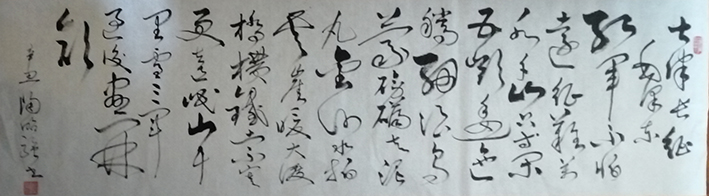 七律长征
毛泽东
红军不怕
远征难万
水千山只等闲
五岭逶迤
腾细浪乌
蒙磅礴走泥
丸金沙水拍
云崖暖大渡
桥横铁索寒
更喜岷山千
里雪三军
过后尽开
颜
辛丑 陶 强书